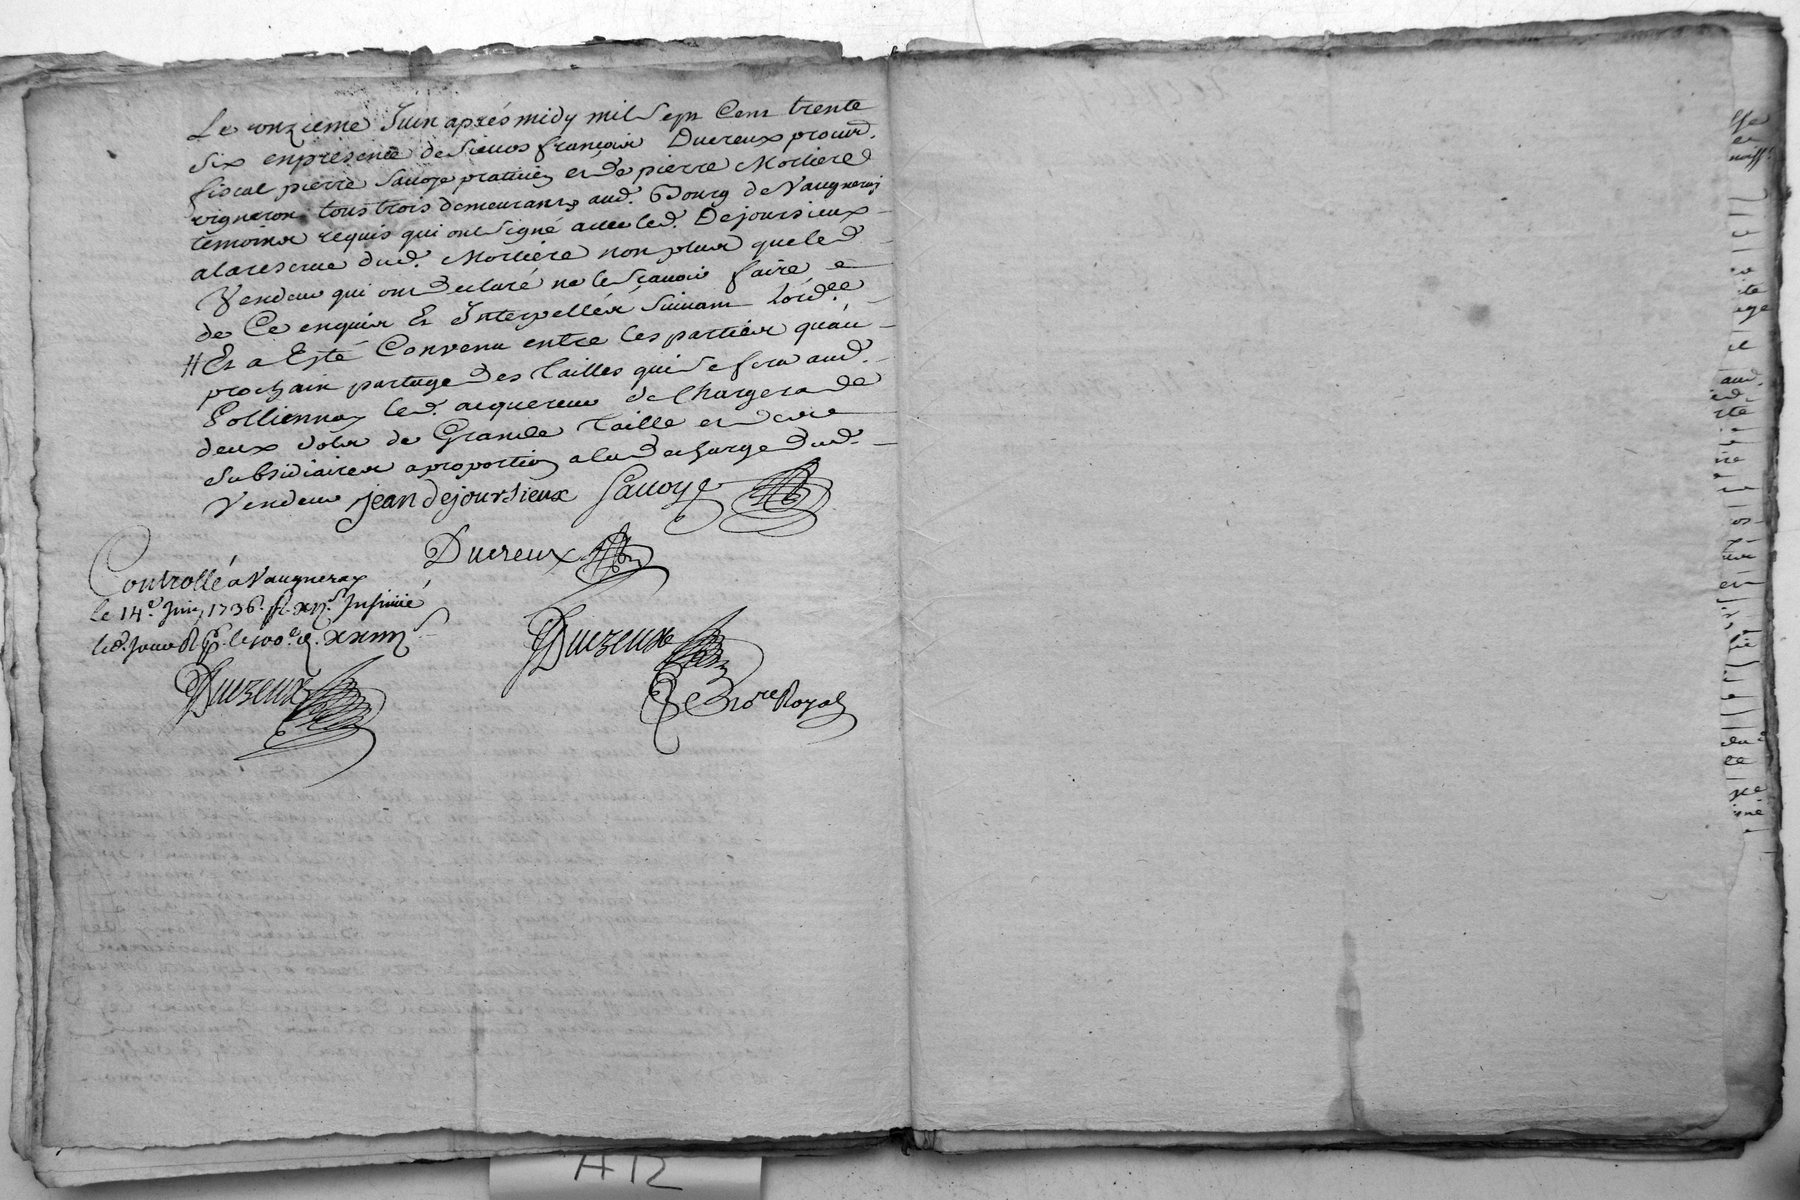 Le onzieme Juin après midy mil Sept Cent trente
Six en presence de Sieurs françois Ducreux procur.
fiscal pierre Sauoye praticien et de pierre Morliere
vigneron tous trois demeurants aud. Bourg de Vaugneray
temoins requis qui ont Signé auec led. Dejoursieux
a la reserue dud. Morliere non plus que led
Vendeur qui ont declaré ne le Sçauoir faire
de Ce enquis Et Interpellés Suiuant lord.ce
# Et a Esté Convenu entre les parties qu'au
prochain partage des tailles qui Se fera aud.
Pollionnay led. acquereur Se Chargera de
deux sols de Grande taille et
Subsidiaires a proportion a la decharge dud
Vendeur jean dejoursieux Sauoye
Ducreux
Controllé a Vaugneray
le 14.e Juin 1736. Insinué
led. Jour
Ducreux
Ducreux
No.re Royal
aud.
A12